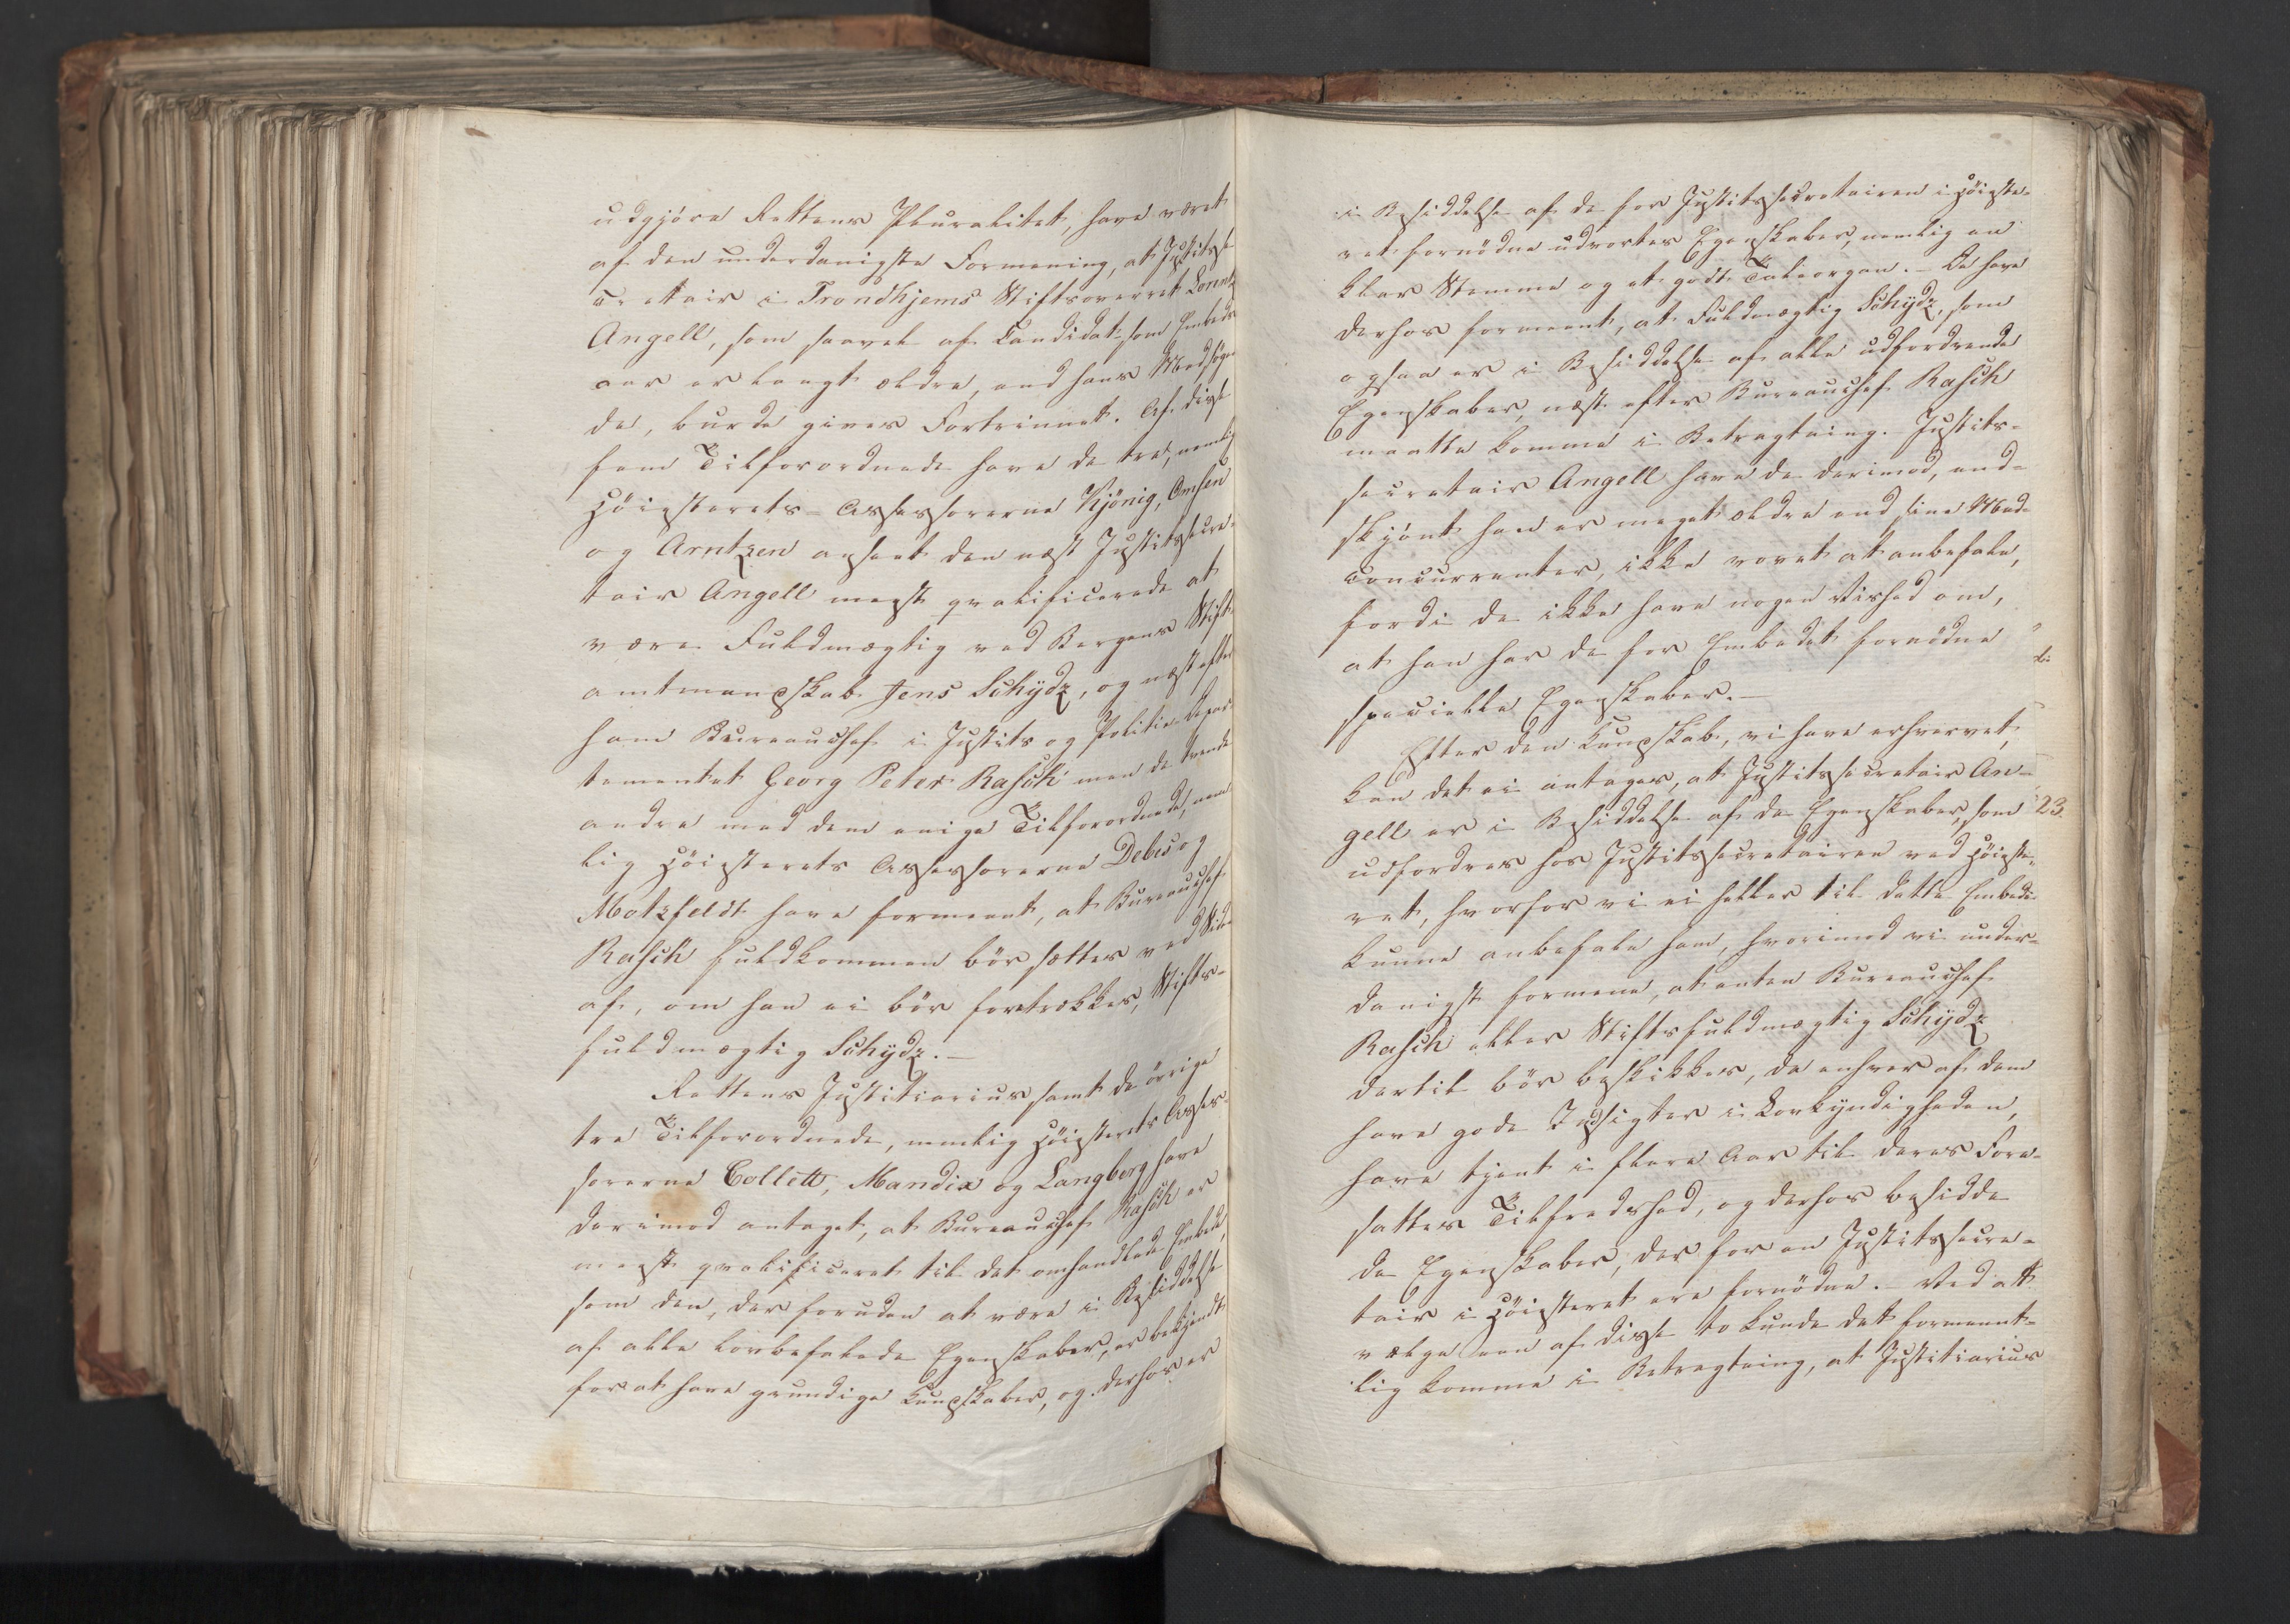 udgjøre Rettens Pluralitet, have været
af den underdanigste Formening, at Justitsse-
cretair i Trondhjems Stiftsoverret Lorentz
Angell, som saavel af Candidat som Embeds
aar er langt ældre, end hans Medsøgen-
de, burde gives Fortrinnet. Af disse
fem Tilforordnede have de tre, nemlig
Höiesterets-Assessorerne Kjönig, Omsen
og Arntzen anseet den næst Justitssecre-
tair Angell meest qvalificerede at
være Fuldmægtig ved Bergens Stift-
amtmanskab Jens Schydz, og næst efter
ham Bureauchef i Justits og Politie-Depar-
tementet Georg Peter Rasch men de tvende
andre med dem enige Tilforordnede, nem-
lig Höiesterets Assessorerne Debes og
Motzfeldt have formeent, at Bureauchef
Rasch fuldkommen bör sættes ved Siden
af, om han ei bör foretrækkes, Stifts-
fuldmægtig Schydz.—
Rettens Justitiarius samt de övrige
tre Tilforordnede, nemlig Höiesterets Asses-
sorerne Collett, Mandix og Langberg have
derimod antaget, at Bureauchef Rasch er
meest qvalificeret til det omhandlede Embede,
som den, der foruden at være i Besiddelse
af alle lovbefalede Egenskaber, er bekjendt
for at have grundige Kundskaber, og derhos er
i Besiddelse af de for Justitssecretairen i Höieste-
ret fornödne udvortes Egenskaber, nemlig en
klar Stemme og et godt Taleorgan.— De have
derhos formeent, at Fuldmægtig Schydz, som
ogsaa er i Besiddelse af alle udfordrende
Egenskaber, næst efter Bureauchef Rasch
maatte komme i Betragtning. Justits-
secretair Angell have de derimod, end-
skjönt han er meget ældre end sine Med-
concurrenter, ikke vovet at anbefale,
fordi de ikke have nogen Vished om,
at han har de for Embedet fornödne
specielle Egenskaber.—
Efter den Kundskab, vi have erhvervet,
kan det ei antages, at Justitssecretair An-
gell er i Besiddelse af de Egenskaber, som
23.
udfordres hos Justitssecretairen ved Höieste-
ret, hvorfor vi ei heller til dette Embede
kunne anbefale ham, hvorimod vi under-
danigst formene, at enten Bureauchef
Rasch eller Stiftsfuldmægtig Schydz
dertil bör beskikkes, da enhver af dem
have gode Indsigter i Lovkyndigheden,
have tjent i flere Aar til deres Fore-
satte's Tilfredshed, og derhos besidde
de Egenskaber, der for en Justitssecre-
tair i Höiesteret ere fornödne. Ved at
vælge een af disse to kunde det formeent-
lig komme i Betragtning, at Justitiarius